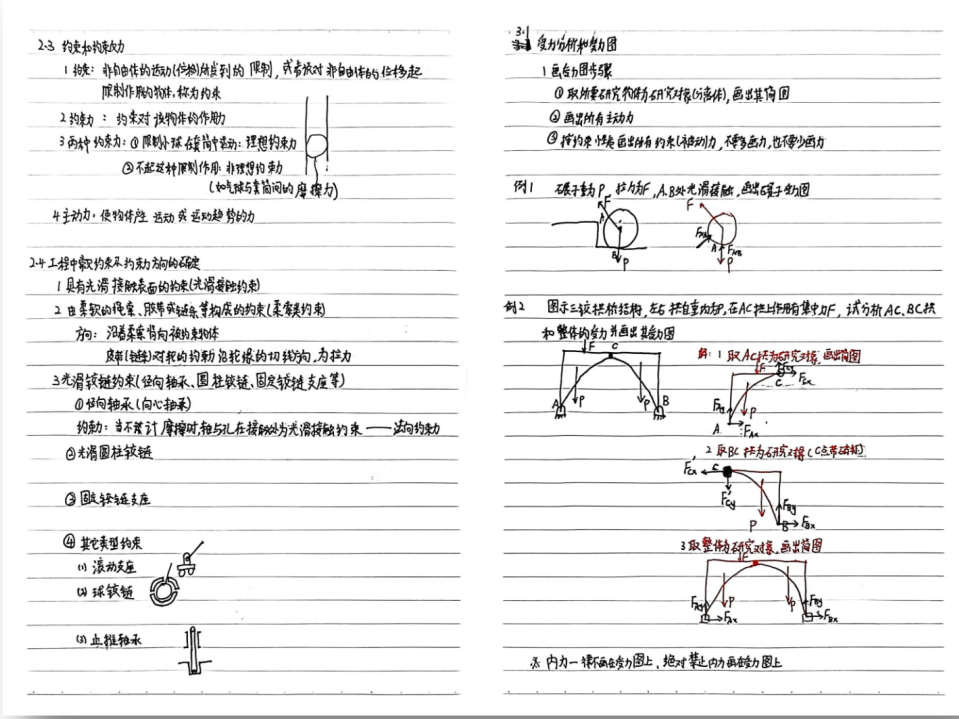 2-3 约束和约束力
1 约束：非自由体的运动(位移)所受到的限制，或者说对非自由体的位移起
限制作用的物体，称为约束
2 约束力：约束对该物体的作用力
3 两种约束力：① 限制小球在套筒中运动：理想约束力
② 不起这种限制作用：非理想约束力
(如气球与套筒间的摩擦力)
4 主动力：使物体产生运动或运动趋势的力
2-4 工程中常见约束和约束力方向的确定
1 具有光滑接触表面的约束(光滑接触约束)
2 由柔软的绳索、胶带或链条等构成的约束(柔索类约束)
方向：沿着柔索背向被约束物体
皮带(链条)对轮的约束力沿轮缘的切线方向，为拉力
3 光滑铰链约束(径向轴承、圆柱铰链、固定铰链支座等)
① 径向轴承(向心轴承)
约束力：当不计摩擦时轴与孔在接触处为光滑接触约束——法向约束力
② 光滑圆柱铰链
③ 固定铰链支座
④ 其它类型约束
(1) 滚动支座
(2) 球铰链
(3) 止推轴承
3.1 受力分析和受力图
1 画受力图步骤
① 取所要研究物体为研究对象(分离体)，画出其简图
② 画出所有主动力
③ 按约束性质画出所有约束(被动)力，不要多画力，也不要少画力
例1 碾子重为P，拉力为F，A、B处光滑接触，画出碾子受力图
F A B P
F FNA A FNB P
例2 图示三铰拱桥结构，左右拱自重均为P，在AC拱上作用有集中力F，试分析AC、BC拱
和整体的受力并画出其受力图
F C A P P B
解：1 取AC拱为研究对象，画出简图
F FCy C FCx FAy P A FAx
2 取BC拱为研究对象(C点带销钉)
F'Cx C F'Cy P FBy B FBx
3 取整体为研究对象，画出简图
F FAy P FAx P FBy FBx
※ 内力一律不画在受力图上，绝对禁止内力画在受力图上